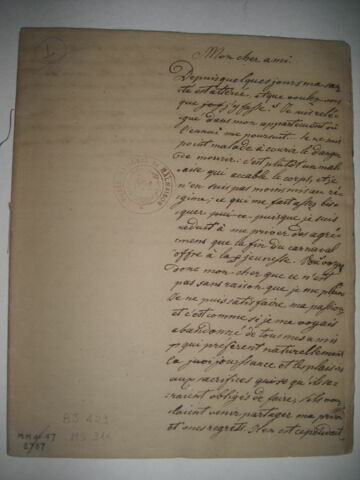 Mon cher ami.
Depuis quelques jours ma san
té est altérée. Et que voulez-vous
que j'y fasse? Je suis relé
gué dans mon appartement où
l'ennui me poursuit. Je ne suis
point malade à courir le danger
de mourir: c'est plutôt un mal
aise qui accable le corps, et je
n'en suis pas moins mis au ré
gime; ce qui me fait assez
puisque je suis
réduit à me priver des agré
mens que la fin du carnaval
offre à la jeunesse.
donc mon cher que ce n'est
pas sans raison que je me plains
Je ne puis satisfaire ma passion
et c'est comme si je me voyais
abandonné de tous mes amis
qui préfèrent naturellement
la jouissance et les plaisirs
aux sacrifices qu'ils se
raient obligés de faire, s'ils vou
laient venir partager ma
et mes regrets. Il en est cependant
MALMAISON
BS 429
MS 311
MM 40-47
8787